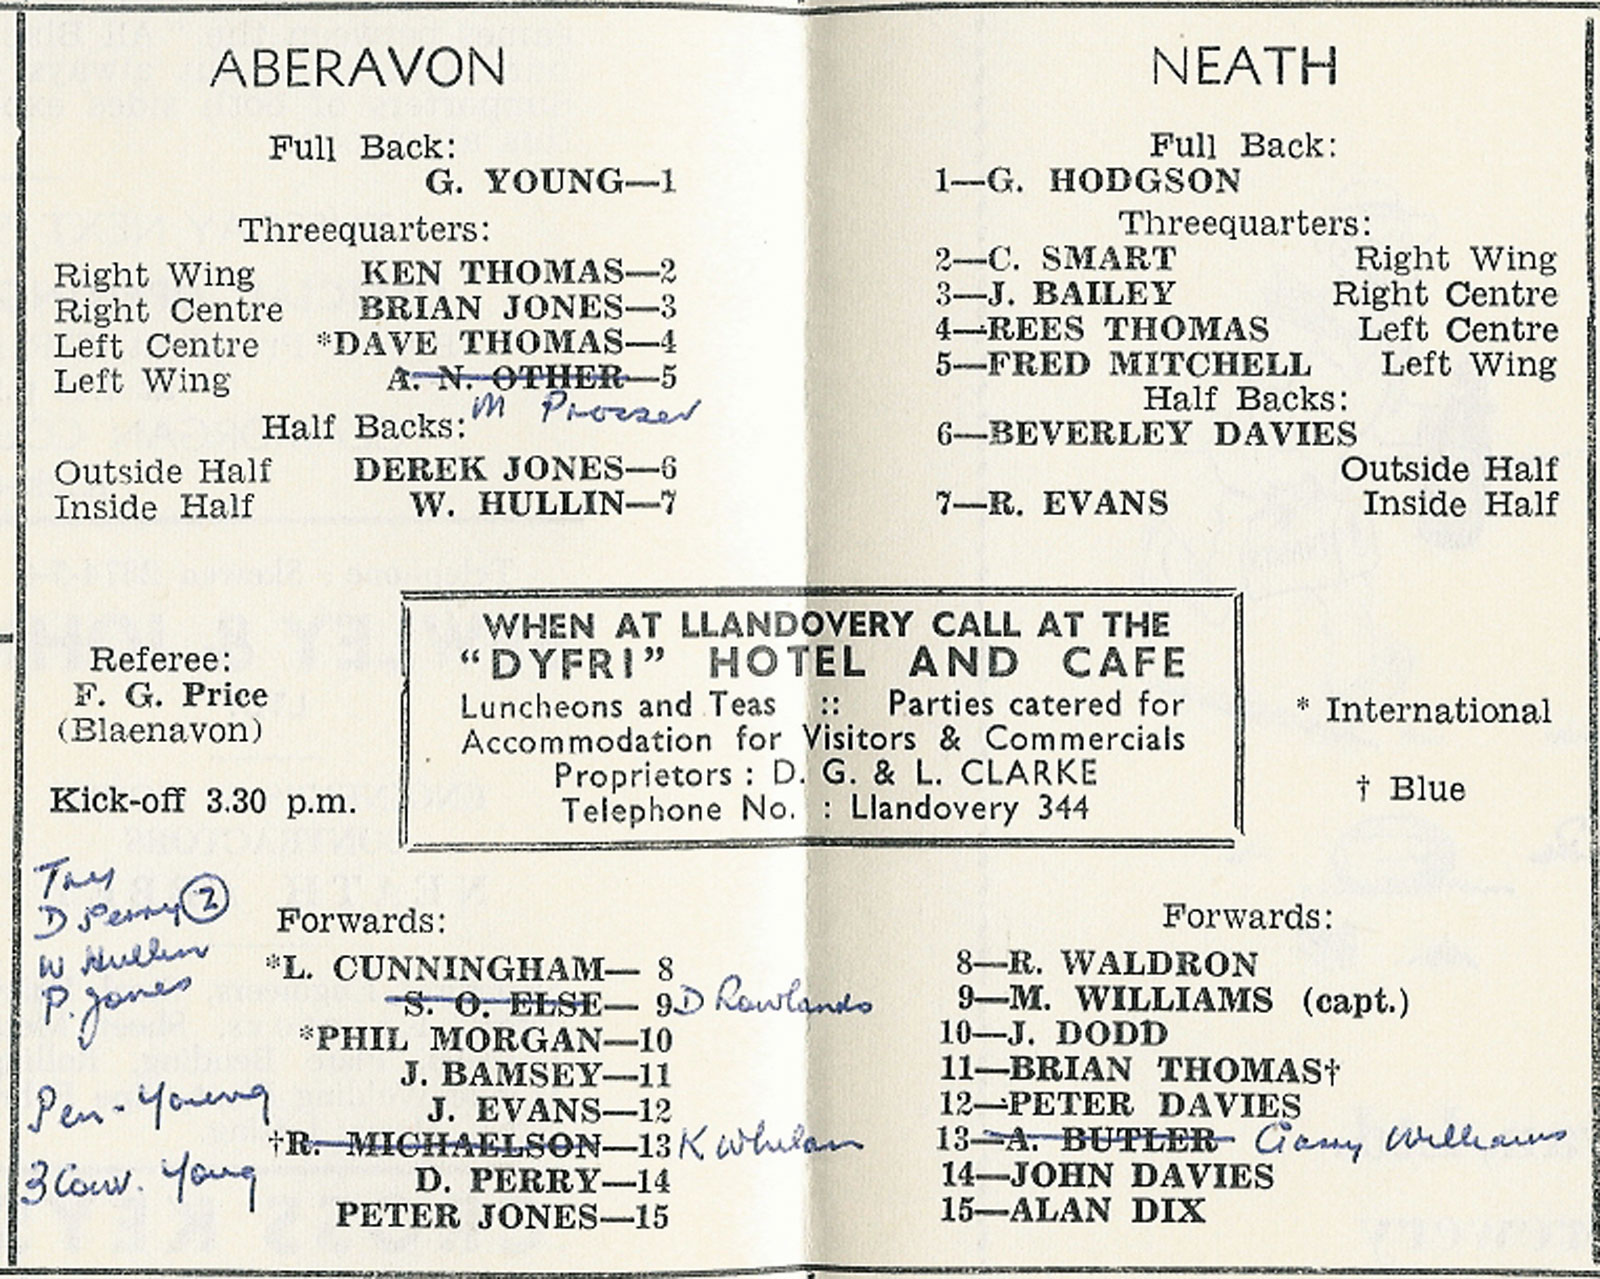 ABERAVON
Full Back:
G. YOUNG—1
Threequarters:
Right Wing KEN THOMAS—2
Right Centre BRIAN JONES—3
Left Centre *DAVE THOMAS—4
Left Wing A. N. OTHER—5
M Prosser
Half Backs:
Outside Half DEREK JONES—6
Inside Half W. HULLIN—7
NEATH
Full Back:
1—G. HODGSON
Threequarters:
2—C. SMART Right Wing
3—J. BAILEY Right Centre
4—REES THOMAS Left Centre
5—FRED MITCHELL Left Wing
Half Backs:
6—BEVERLEY DAVIES
Outside Half
7—R. EVANS Inside Half
Referee:
F. G. Price
(Blaenavon)
Kick-off 3.30 p.m.
WHEN AT LLANDOVERY CALL AT THE
"DYFRI" HOTEL AND CAFE
Luncheons and Teas :: Parties catered for
Accommodation for Visitors & Commercials
Proprietors : D. G. & L. CLARKE
Telephone No. : Llandovery 344
* International
† Blue
Trys
D Perry 2
W Hullin
P. Jones
Pen - Young
3 Conv. Young
Forwards:
*L. CUNNINGHAM— 8
S. O. ELSE— 9 D Rowlands
*PHIL MORGAN—10
J. BAMSEY—11
J. EVANS—12
†R. MICHAELSON—13 K Whelan
D. PERRY—14
PETER JONES—15
Forwards:
8—R. WALDRON
9—M. WILLIAMS (capt.)
10—J. DODD
11—BRIAN THOMAS†
12—PETER DAVIES
13—A. BUTLER Garry Williams
14—JOHN DAVIES
15—ALAN DIX